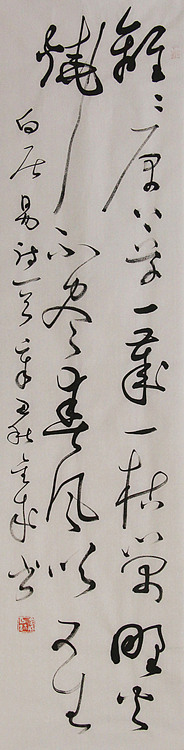 離〻原上草一歲一枯榮野火
燒不尽春風吹又生
白居易诗一首辛丑秋书